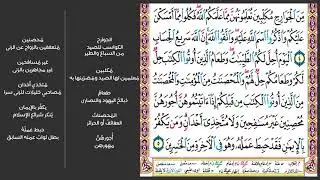 مِّنَ ٱلْجَوَارِحِ مُكَلِّبِينَ تُعَلِّمُونَهُنَّ مِمَّا عَلَّمَكُمُ ٱللَّهُ فَكُلُوا۟ مِمَّآ أَمْسَكْنَ
عَلَيْكُمْ وَٱذْكُرُوا۟ ٱسْمَ ٱللَّهِ عَلَيْهِ وَٱتَّقُوا۟ ٱللَّهَ إِنَّ ٱللَّهَ سَرِيعُ ٱلْحِسَابِ
٤ ٱلْيَوْمَ أُحِلَّ لَكُمُ ٱلطَّيِّبَـٰتُ وَطَعَامُ ٱلَّذِينَ أُوتُوا۟ ٱلْكِتَـٰبَ حِلٌّ
لَّكُمْ وَطَعَامُكُمْ حِلٌّ لَّهُمْ وَٱلْمُحْصَنَـٰتُ مِنَ ٱلْمُؤْمِنَـٰتِ وَٱلْمُحْصَنَـٰتُ
مِنَ ٱلَّذِينَ أُوتُوا۟ ٱلْكِتَـٰبَ مِن قَبْلِكُمْ إِذَآ ءَاتَيْتُمُوهُنَّ أُجُورَهُنَّ
مُحْصِنِينَ غَيْرَ مُسَـٰفِحِينَ وَلَا مُتَّخِذِىٓ أَخْدَانٍ وَمَن يَكْفُرْ
بِٱلْإِيمَـٰنِ فَقَدْ حَبِطَ عَمَلُهُۥ وَهُوَ فِى ٱلْـَٔاخِرَةِ مِنَ ٱلْخَـٰسِرِينَ ٥
الجوارح
الكواسب للصيد
من السباع والطير
مُكلّبين
معلمين لها الصيد
طعام
ذبائح اليهود والنصارى
المُحصنات
العفائف أو الحرائر
أجورهن
مهورهن
مُحصنين
مُتعففين بالزواج عن الزنى
غير مسافحين
غير مجاهرين بالزنى
مُتخذي أخدان
مصاحبي خليلات للزنى سرا
يكفر بالإيمان
ينكر شرائع الإسلام
حبط عمله
بطل ثواب عمله السابق